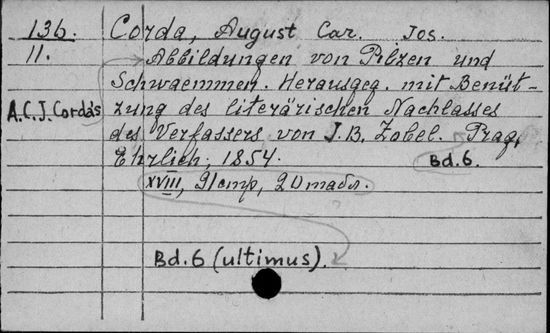 136. Corda, August Car. Jos.
11. Abbildungen von Pilzen und
Schwaemmen. Herausgeg. mit Benüt-
A.C.J. Corda's zung des literärischen Nachlasses
des Verfassers von J.B. Zobel. Prag,
Ehrlich, 1854. Bd.6.
XVIII, 91 стр, 20 табл.
Bd.6 (ultimus).